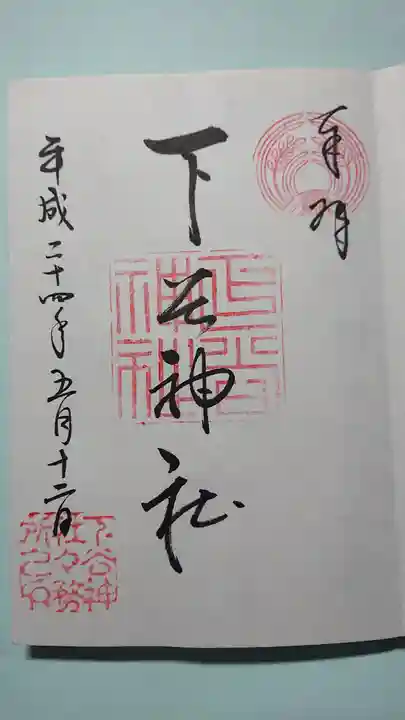 奉拝
下谷神社
平成二十四年五月十二日
下谷神
社々務
所之印